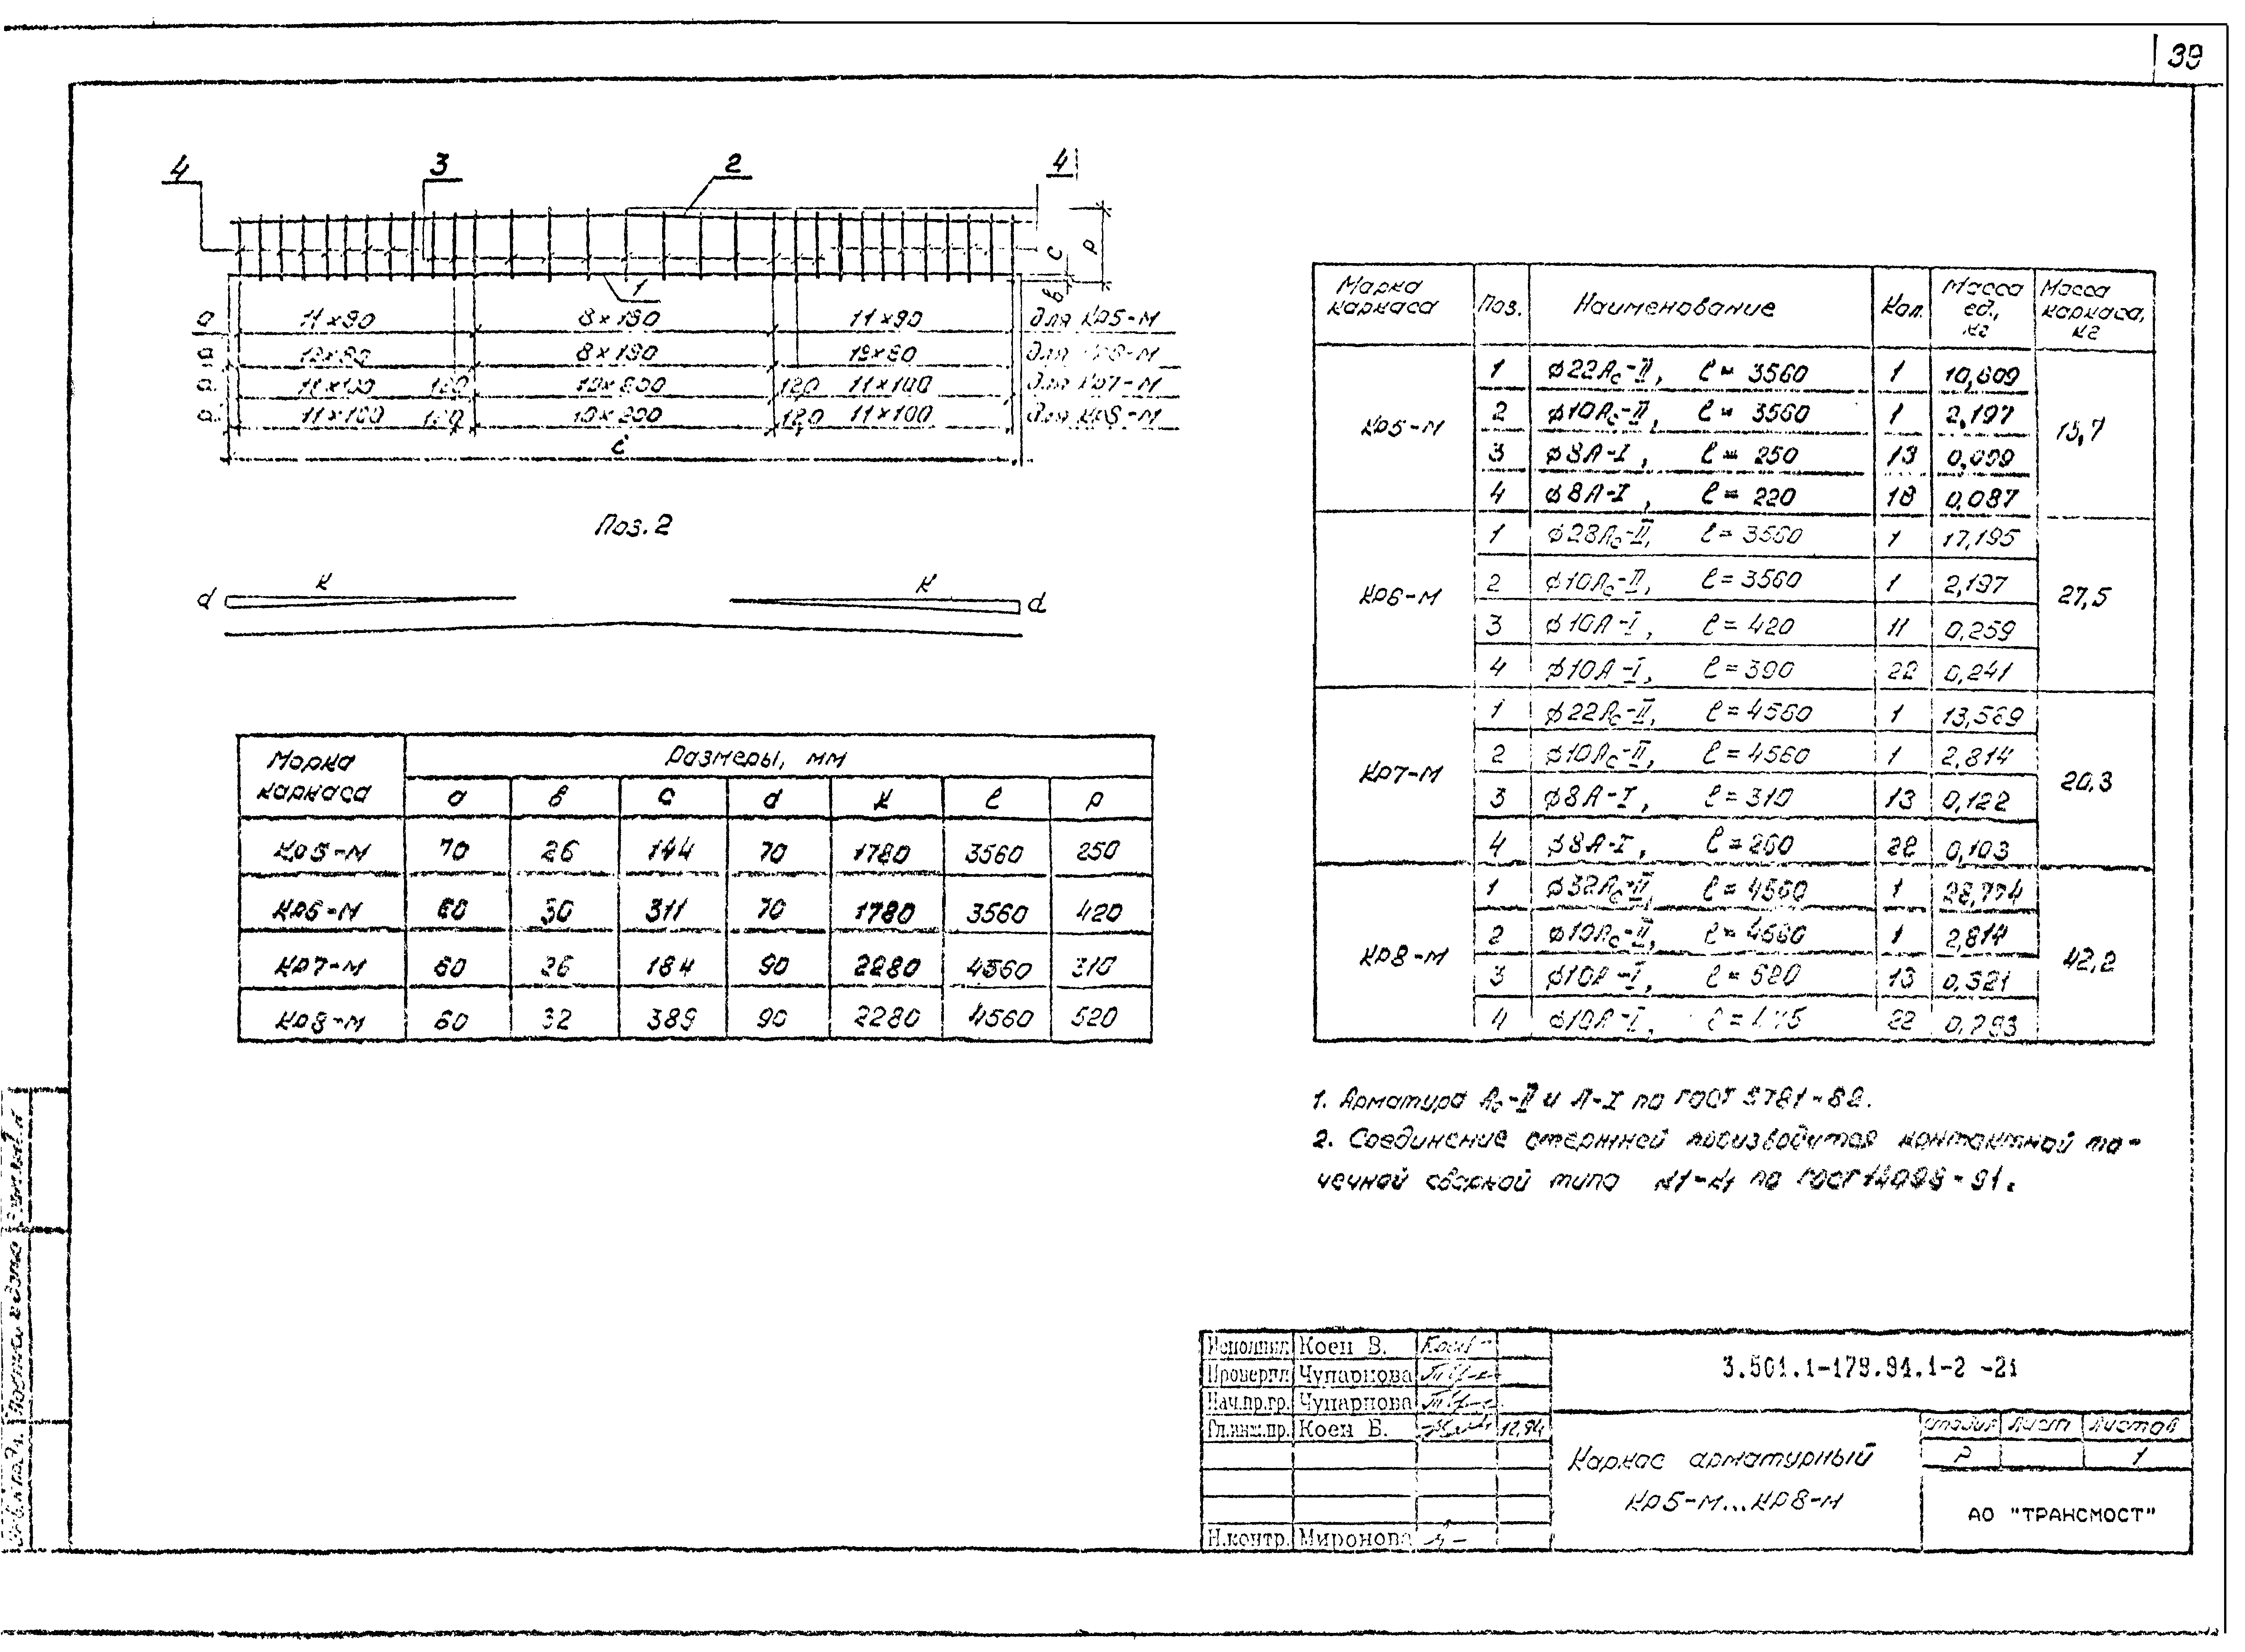 39
4 3 2 4
с р
1 в
а 11×90 8×190 11×90 для КР5-М
а 8×190 для КР6-М
а 11×100 120 120 11×100 для КР7-М
а 11×100 120 10×200 120 11×100 для КР8-М
ℓ
Поз. 2
d к к d
Марка каркаса Размеры, мм
а в с d к ℓ р
КР5-М 70 26 144 70 1780 3560 250
КР6-М 60 30 311 70 1780 3560 420
КР7-М 60 26 184 90 2280 4560 310
КР8-М 60 32 389 90 2280 4560 520
Марка каркаса Поз. Наименование Кол. Масса ед., кг Масса каркаса, кг
КР5-М 1 ф22Ас-II, ℓ = 3560 1 10,609 15,7
2 ф10Ас-II, ℓ = 3560 1 2,197
3 ф8А-I, ℓ = 250 13 0,099
4 ф8А-I, ℓ = 220 18 0,087
КР6-М 1 ф28Ас-II, ℓ = 3560 1 17,195 27,5
2 ф10Ас-II, ℓ = 3560 1 2,197
3 ф10А-I, ℓ = 420 11 0,259
4 ф10А-I, ℓ = 390 22 0,241
КР7-М 1 ф22Ас-II, ℓ = 4560 1 13,589 20,3
2 ф10Ас-II, ℓ = 4560 1 2,814
3 ф8А-I, ℓ = 310 13 0,122
4 ф8А-I, ℓ = 260 22 0,103
КР8-М 1 ф32Ас-II, ℓ = 4560 1 28,774 42,2
2 ф10Ас-II, ℓ = 4560 1 2,814
3 ф10А-I, ℓ = 520 13 0,321
4 ф10А-I, ℓ = 475 22 0,293
1. Арматура Ас-II и А-I по ГОСТ 5781-82.
2. Соединение стержней производится контактной то-
чечной сваркой типа К1-К1 по ГОСТ 14098-91.
Исполнил Коен В.
Проверил Чупарнова
Нач.пр.гр. Чупарнова
Гл.инж.пр. Коен Б. 12.94
Н.контр. Миронова
3.501.1-178.94.1-2 -21
Каркас арматурный
КР5-М...КР8-М
Стадия Лист Листов
Р 1
АО "ТРАНСМОСТ"
Инв.N подл. Подпись и дата Взам.инв.N